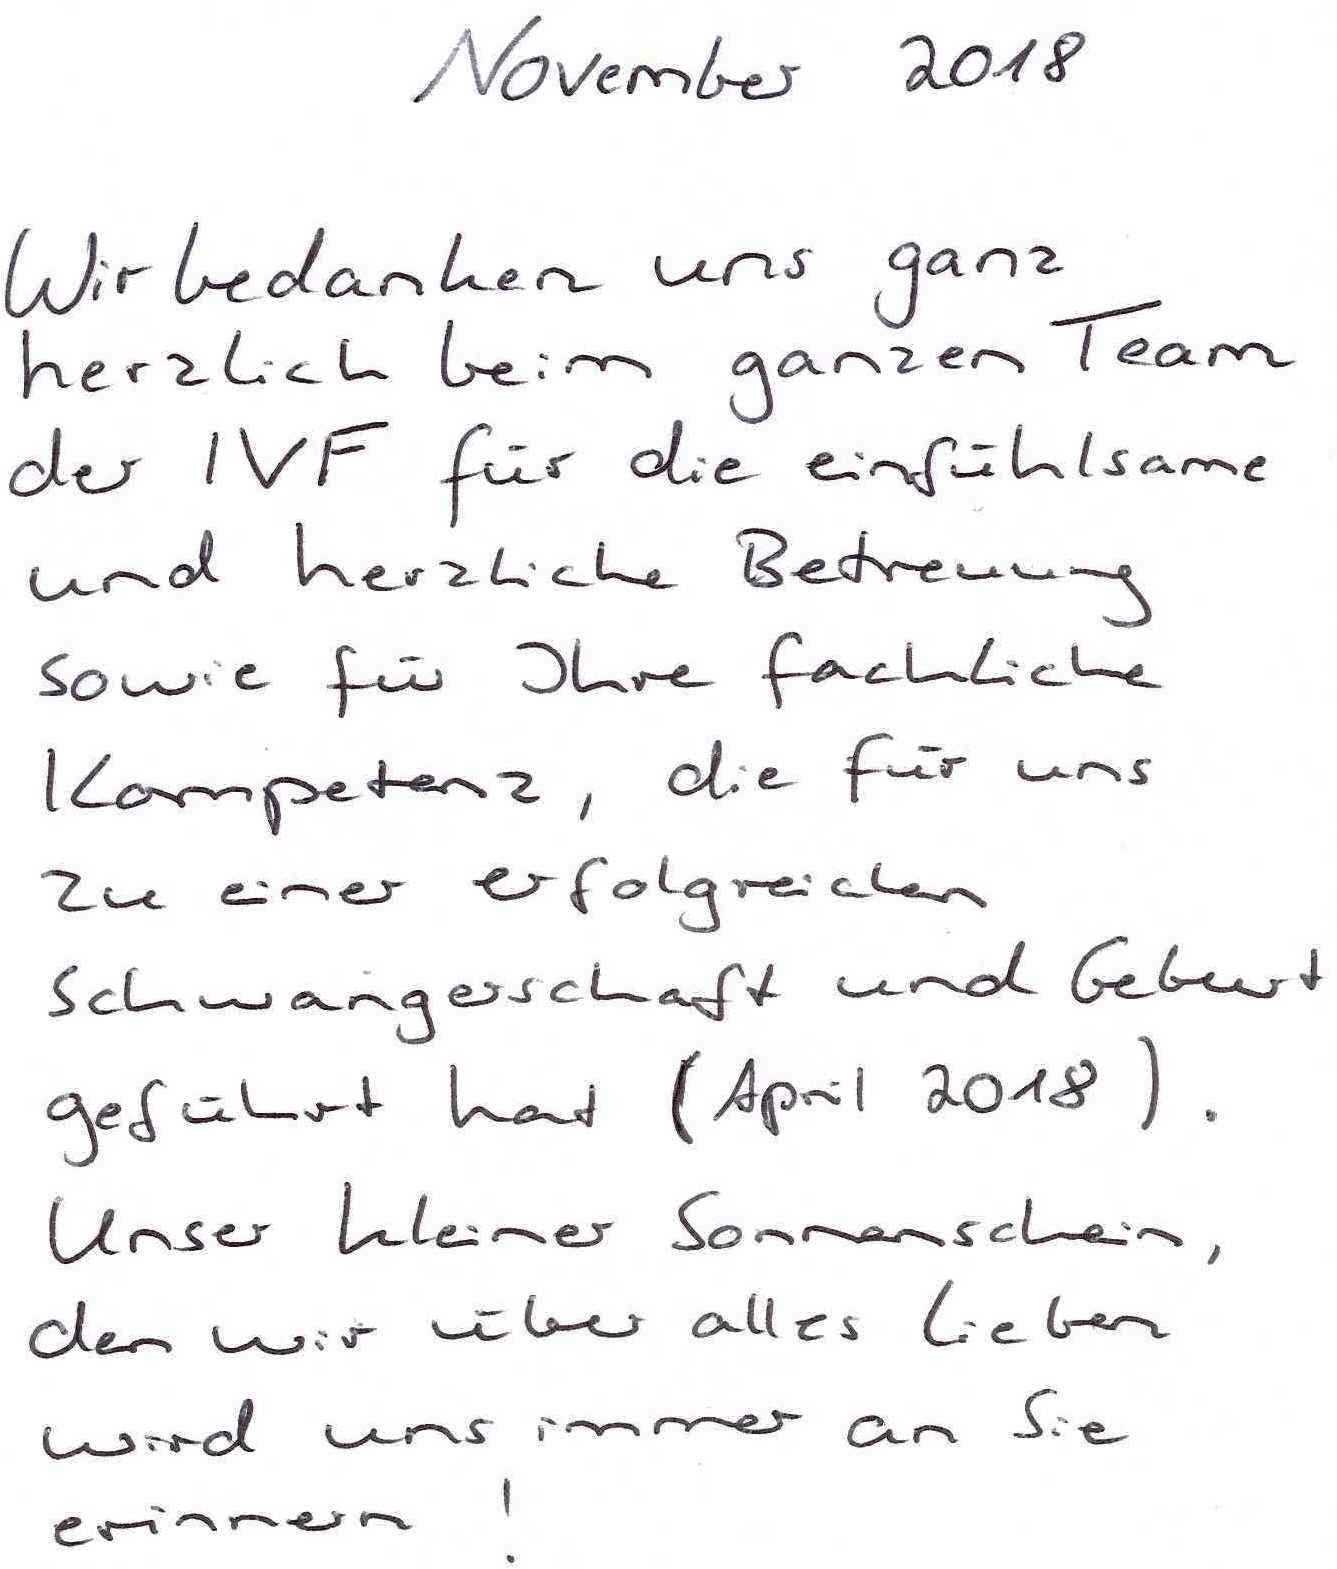 November 2018
Wir bedanken uns ganz
herzlich beim ganzen Team
der IVF für die einfühlsame
und herzliche Betreuung
sowie für Ihre fachliche
Kompetenz, die für uns
zu einer erfolgreichen
Schwangerschaft und Geburt
geführt hat (April 2018).
Unser kleiner Sonnenschein,
den wir über alles lieben
wird uns immer an Sie
erinnern!